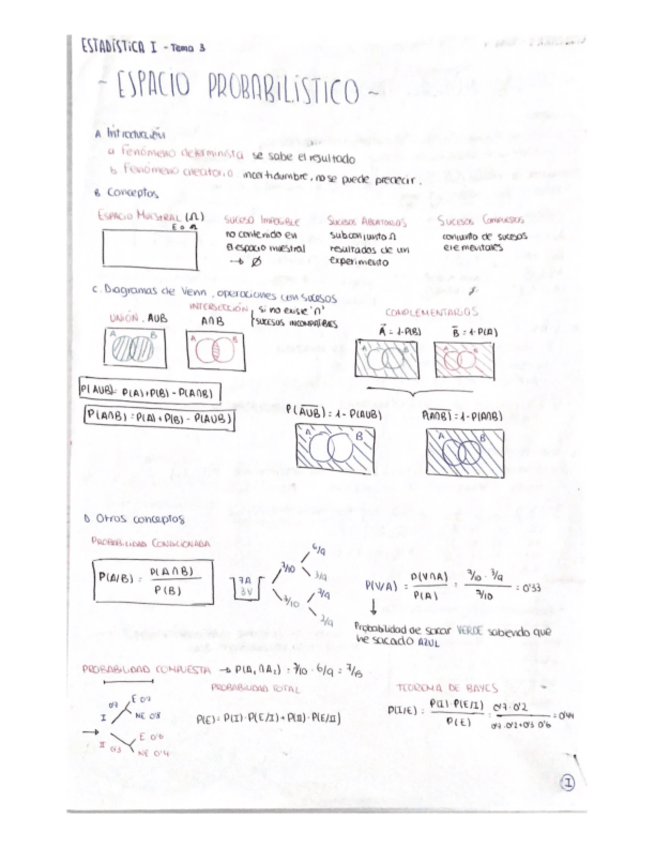 ESTADÍSTICA I - Tema 3
- ESPACIO PROBABILÍSTICO -
A. Introducción
a. Fenómeno determinista se sabe el resultado
b. Fenómeno aleatorio incertidumbre, no se puede predecir.
B. Conceptos
ESPACIO MUESTRAL (Ω)
SUCESO IMPOSIBLE
no contenido en
el espacio muestral
→ Ø
SUCESOS ALEATORIOS
subconjunto Ω
resultados de un
experimento
SUCESOS COMPUESTOS
conjunto de sucesos
elementales
C. Diagramas de Venn, operaciones con sucesos
UNIÓN, A∪B
A B
INTERSECCIÓN
A∩B
si no existe '∩'
SUCESOS INCOMPATIBLES
COMPLEMENTARIOS
B̄ = 1-P(A)
P(A∪B) = P(A)+P(B) - P(A∩B)
P(A∩B) = P(A)+P(B) - P(A∪B)
P(A∪B) = 1 - P(A∪B)
P(A∩B) = 1-P(A∩B)
A B
A B
D. Otros conceptos
PROBABILIDAD CONDICIONADA
P(A/B) = P(A∩B) / P(B)
7A
3V
7/10
3/10
6/9
3/9
7/9
2/9
P(V/A) = P(V∩A) / P(A) = 7/10 · 3/9 / 7/10 = 0'33
Probabilidad de sacar VERDE sabiendo que
he sacado AZUL
PROBABILIDAD COMPUESTA → P(A₁∩A₂) = 7/10 · 6/9 = 7/15
PROBABILIDAD TOTAL
P(E) = P(I)·P(E/I) + P(II)·P(E/II)
TEOREMA DE BAYES
P(I/E) = P(I)·P(E/I) / P(E) = 0'7·0'2 / 0'7·0'2+0'3·0'6 = 0'44
I 0'7
NE 0'8
II 0'3
E 0'6
NE 0'4
1